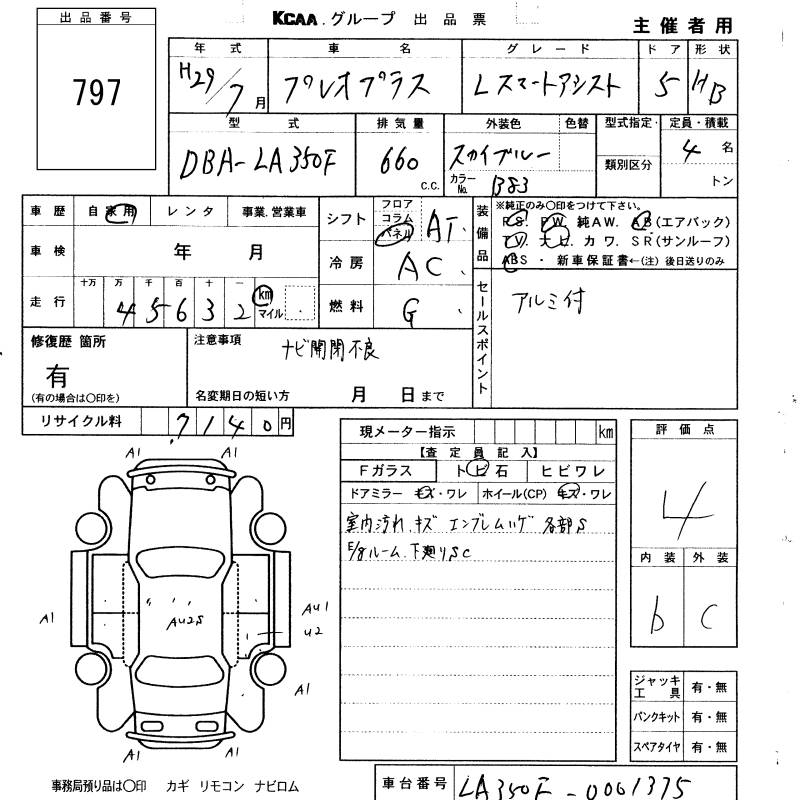 KCAA.グループ 出品票
主催者用
出品番号
797
年式 車名 グレード ドア 形状
H29/7月 プレオプラス Lスマートアシスト 5 HB
型式 排気量 外装色 色替 型式指定・類別区分 定員・積載
DBA-LA350F 660 c.c. スカイブルー カラーNo. B83 4名 トン
車歴 自家用 レンタ 事業.営業車
車検 年 月
走行 十万 万 千 百 十 一
45632 km マイル
シフト フロア コラム パネル AT
冷房 AC
燃料 G
装備品
※純正のみ〇印をつけて下さい。
PS. PW. 純AW. AB(エアバック)
TV. ナビ. カワ. SR(サンルーフ)
ABS ・ 新車保証書←(注) 後日送りのみ
セールスポイント
アルミ付
修復歴 箇所
有
(有の場合は〇印を)
注意事項
ナビ開閉不良
名変期日の短い方 月 日まで
リサイクル料 7140円
現メーター指示 km
【査定員記入】
Fガラス トビ石 ヒビワレ
ドアミラー キズ・ワレ ホイール(CP) キズ・ワレ
室内汚れ.キズ エンブレムハゲ 各部S
E/gルーム.下廻りSC
評価点
4
内装 外装
b C
A1 A1
A1
AU2S
AU1
U2
A1
A1 A1
ジャッキ工具 有・無
パンクキット 有・無
スペアタイヤ 有・無
事務局預り品は〇印 カギ リモコン ナビロム
車台番号 LA350F-0061375